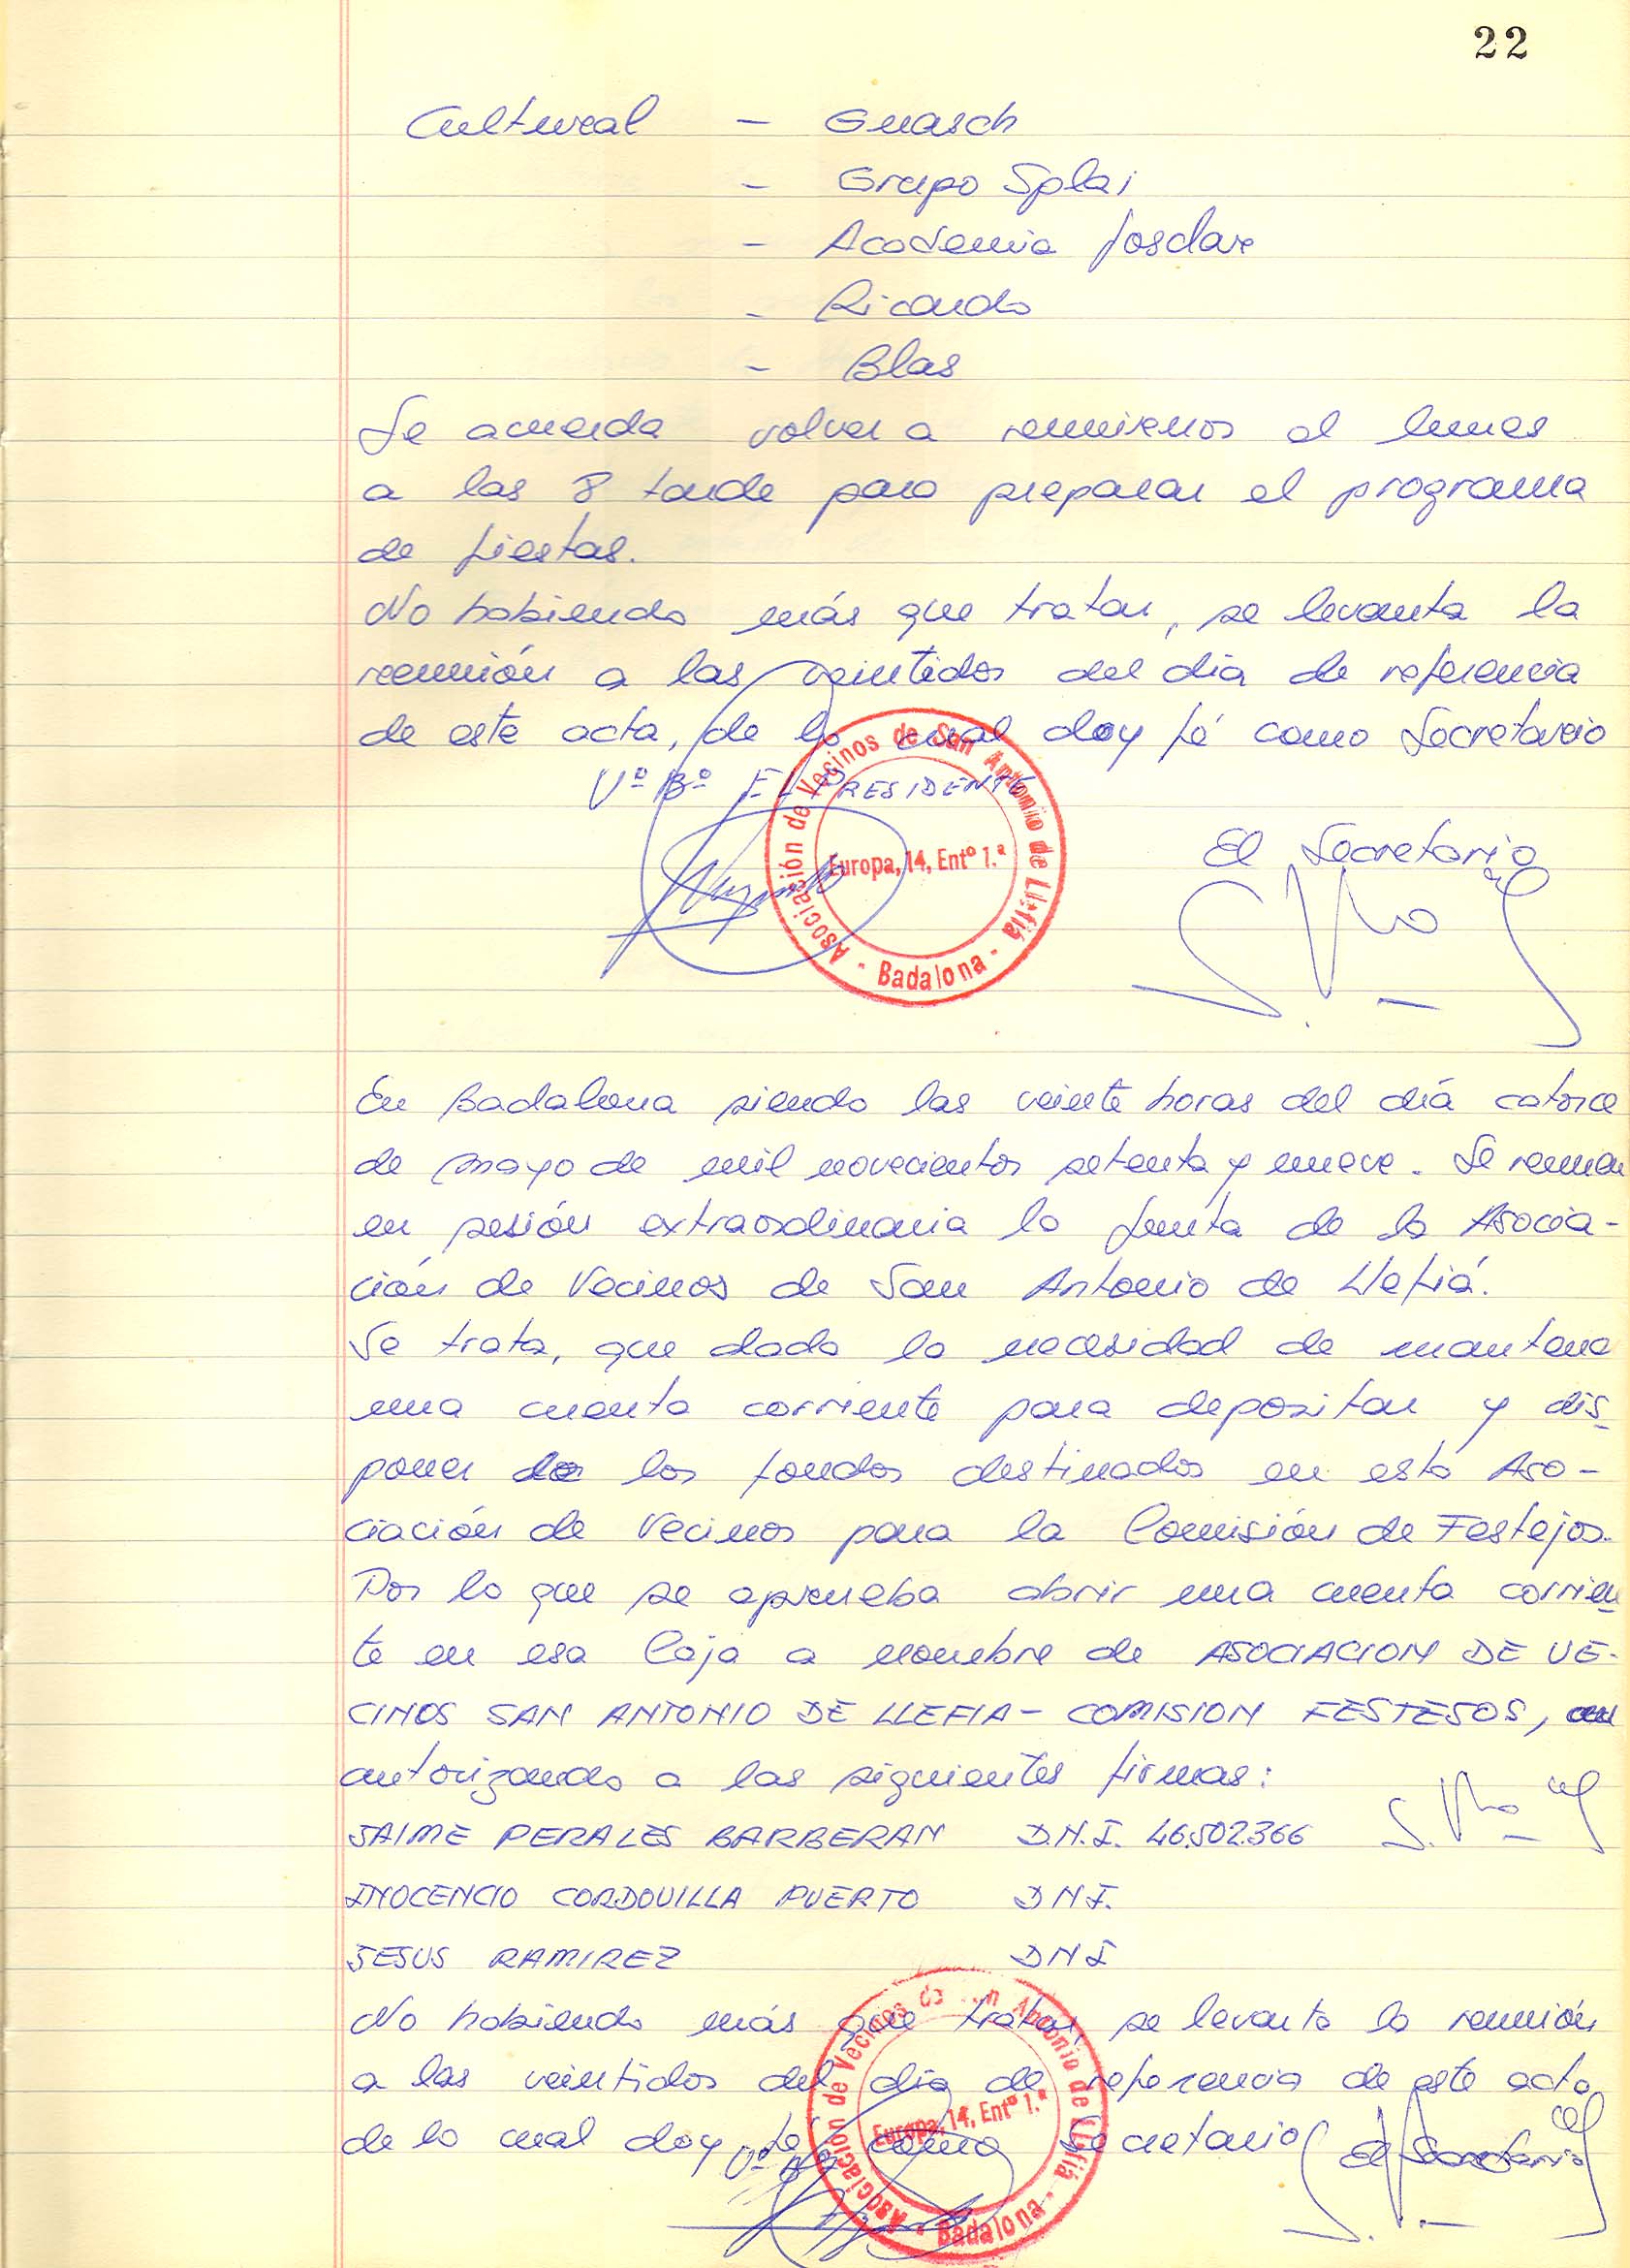 22
Cultural - Guasch
- Grupo Splai
- Academia Josclare
- Ricardo
- Blas
Se acuerda volver a reunirenos el lunes
a las 8 tarde para preparar el programa
de fiestas.
No habiendo más que tratar, se levanta la
reunión a las veintidos del dia de referencia
de este acta, de lo cual doy fé como Secretario
Vº Bº EL PRESIDENTE
Asociación de Vecinos de San Antonio de Llefiá - Badalona -
Europa, 14, Entº 1.ª
El Secretario
En Badalona siendo las veinte horas del día catorce
de mayo de mil novecientos setenta y nueve. Se reunen
en sesión extraordinaria la Junta de la Asocia-
ción de Vecinos de San Antonio de Llefiá.
Se trata, que dado la necesidad de mantene
una cuenta corriente para depositar y dis-
poner de los fondos destinados en esta Aso-
ciación de Vecinos para la Comisión de Festejos.
Por lo que se aprueba abrir una cuenta corrien
te en esa Caja a nombre de ASOCIACION DE VE-
CINOS SAN ANTONIO DE LLEFIA - COMISION FESTEJOS,
autorizando a las siguientes firmas:
JAIME PERALES BARBERAN D.N.I. 46.502.366
INOCENCIO CORDOVILLA PUERTO DNI.
JESUS RAMIREZ DNI
No habiendo más que tratar, se levanta la reunión
a las veintidos del dia de referencia de este acta
de lo cual doy fé como Secretario
Vº Bº
El Secretario
Asociación de Vecinos de San Antonio de Llefiá - Badalona -
Europa, 14, Entº 1.ª